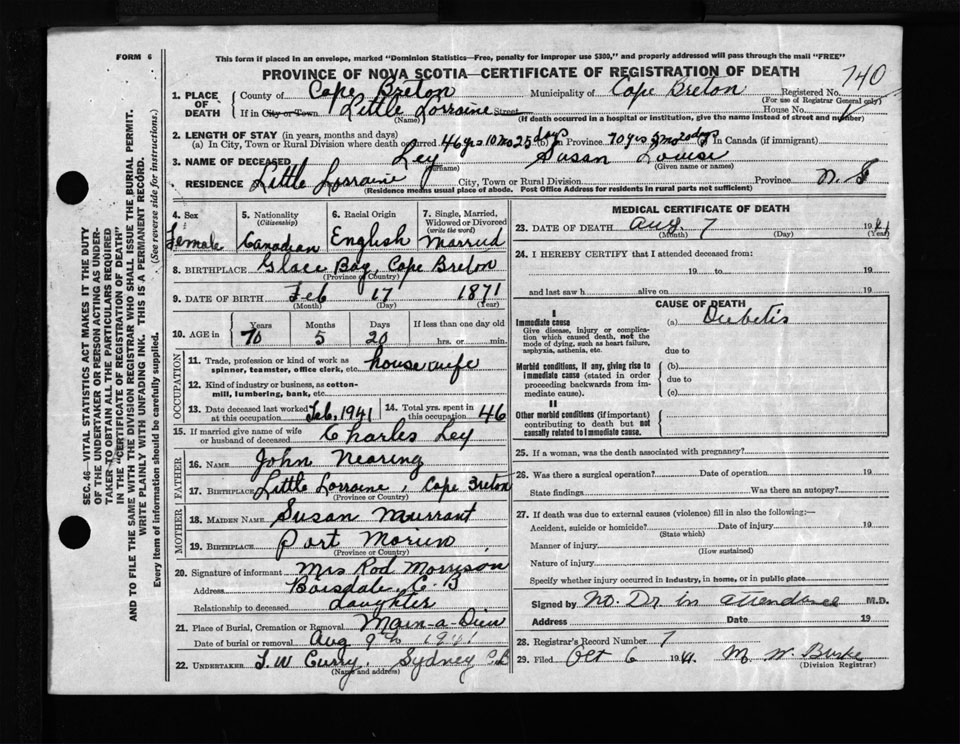 FORM 6
This form if placed in an envelope, marked "Dominion Statistics—Free, penalty for improper use $300," and properly addressed will pass through the mail "FREE"
PROVINCE OF NOVA SCOTIA—CERTIFICATE OF REGISTRATION OF DEATH
740
1. PLACE OF DEATH
County of Cape Breton Municipality of Cape Breton Registered No.
(For use of Registrar General only)
If in City or Town Little Lorraine Street House No.
(Name) (If death occurred in a hospital or institution, give the name instead of street and number)
2. LENGTH OF STAY (in years, months and days)
(a) In City, Town or Rural Division where death occurred 46 yrs 10 mo 25 days (b) in Province 70 yrs 5 mo 20 days (c) in Canada (if immigrant)
3. NAME OF DECEASED Ley Susan Louise
(Surname) (Given name or names)
RESIDENCE Little Lorraine City, Town or Rural Division Province N. S
(Residence means usual place of abode. Post Office Address for residents in rural parts not sufficient)
4. Sex Female
5. Nationality (Citizenship) Canadian
6. Racial Origin English
7. Single, Married, Widowed or Divorced (write the word) Married
8. BIRTHPLACE Glace Bay, Cape Breton
(Province or Country)
9. DATE OF BIRTH Feb 17 1871
(Month) (Day) (Year)
10. AGE in Years Months Days If less than one day old
70 5 20 hrs. or min.
OCCUPATION
11. Trade, profession or kind of work as spinner, teamster, office clerk, etc. house wife
12. Kind of industry or business, as cotton-mill, lumbering, bank, etc.
13. Date deceased last worked at this occupation Feb. 1941
14. Total yrs. spent in this occupation 46
15. If married give name of wife or husband of deceased Charles Ley
FATHER
16. NAME John Nearing
17. BIRTHPLACE Little Lorraine, Cape Breton
(Province or Country)
MOTHER
18. MAIDEN NAME Susan Murrant
19. BIRTHPLACE Port Morien,
(Province or Country)
20. Signature of informant Mrs Rod Morrison
Address Boisdale C. B
Relationship to deceased daughter
21. Place of Burial, Cremation or Removal Main-a-Dieu
Date of burial or removal Aug 9th 1941
22. UNDERTAKER T. W Curry, Sydney
(Name and address)
MEDICAL CERTIFICATE OF DEATH
23. DATE OF DEATH Aug. 7 1941
(Month) (Day) (Year)
24. I HEREBY CERTIFY that I attended deceased from:
19 to 19
and last saw h alive on 19
CAUSE OF DEATH
I
Immediate cause (a) Diebetis
Give disease, injury or complication which caused death, not the mode of dying, such as heart failure, asphyxia, asthenia, etc.
due to
Morbid conditions, if any, giving rise to immediate cause (stated in order proceeding backwards from immediate cause).
(b)
due to
(c)
II
Other morbid conditions (if important) contributing to death but not causally related to immediate cause.
25. If a woman, was the death associated with pregnancy?
26. Was there a surgical operation? Date of operation 19
State findings Was there an autopsy?
27. If death was due to external causes (violence) fill in also the following:—
Accident, suicide or homicide? Date of injury 19
(State which)
Manner of injury
(How sustained)
Nature of injury
Specify whether injury occurred in industry, in home, or in public place
Signed by No. Dr in attendance M.D.
Address Date 19
28. Registrar's Record Number 7
29. Filed Oct 6 1941. M. W. Burke
(Division Registrar)
SEC. 46—VITAL STATISTICS ACT MAKES IT THE DUTY
OF THE UNDERTAKER OR PERSON ACTING AS UNDER-
TAKER TO OBTAIN ALL THE PARTICULARS REQUIRED
IN THE "CERTIFICATE OF REGISTRATION OF DEATH"
AND TO FILE THE SAME WITH THE DIVISION REGISTRAR WHO SHALL ISSUE THE BURIAL PERMIT.
WRITE PLAINLY WITH UNFADING INK. THIS IS A PERMANENT RECORD.
Every item of information should be carefully supplied. (See reverse side for instructions.)